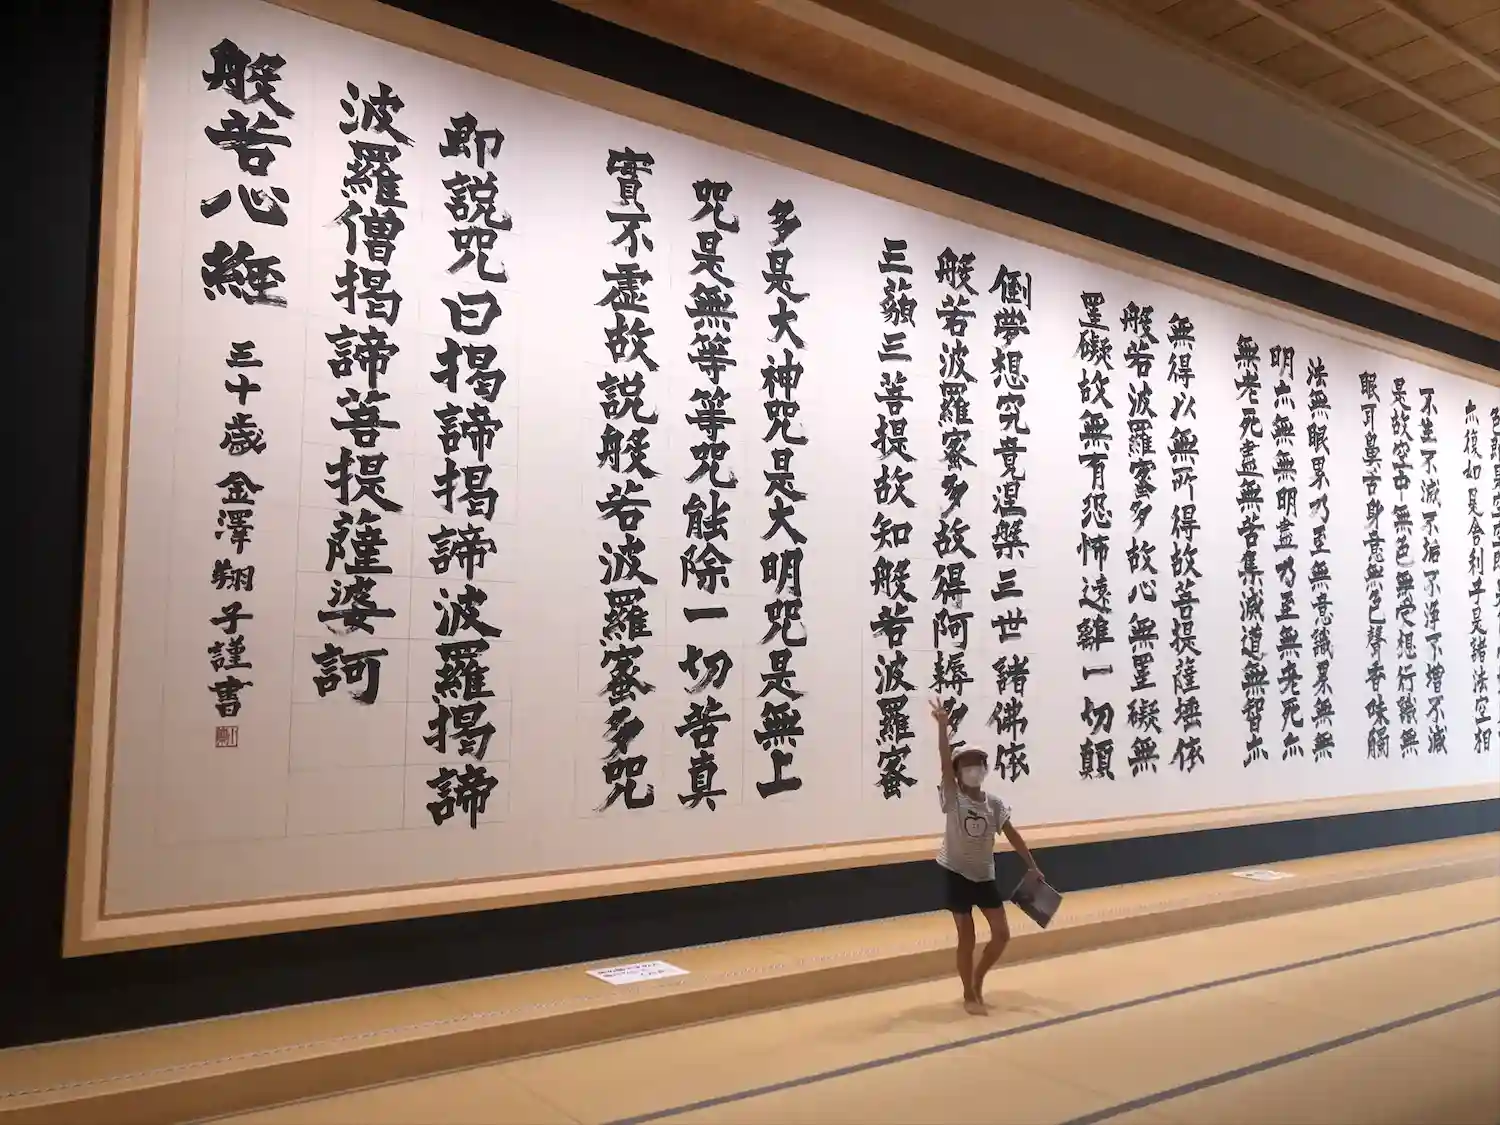 色即是空空即
亦復如是舎利子是諸法空相
不生不滅不垢不浄不増不減
是故空中無色無受想行識無
眼耳鼻舌身意無色聲香味觸
法無眼界乃至無意識界無無
明亦無無明盡乃至無老死亦
無老死盡無苦集滅道無智亦
無得以無所得故菩提薩埵依
般若波羅蜜多故心無罣礙無
罣礙故無有恐怖遠離一切顛
倒夢想究竟涅槃三世諸佛依
般若波羅蜜多故得阿耨多
三藐三菩提故知般若波羅蜜
多是大神咒是大明咒是無上
咒是無等等咒能除一切苦真
實不虚故説般若波羅蜜多咒
即説咒曰揭諦揭諦波羅揭諦
波羅僧揭諦菩提薩婆訶
般若心経 三十歳 金澤翔子謹書